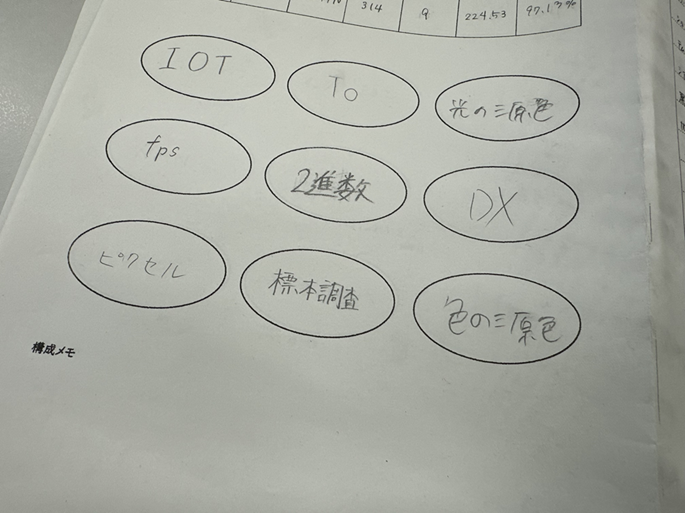 314 9 224.53 97.13%
IOT To 光の三原色
fps 2進数 DX
ピクセル 標本調査 色の三原色
構成メモ